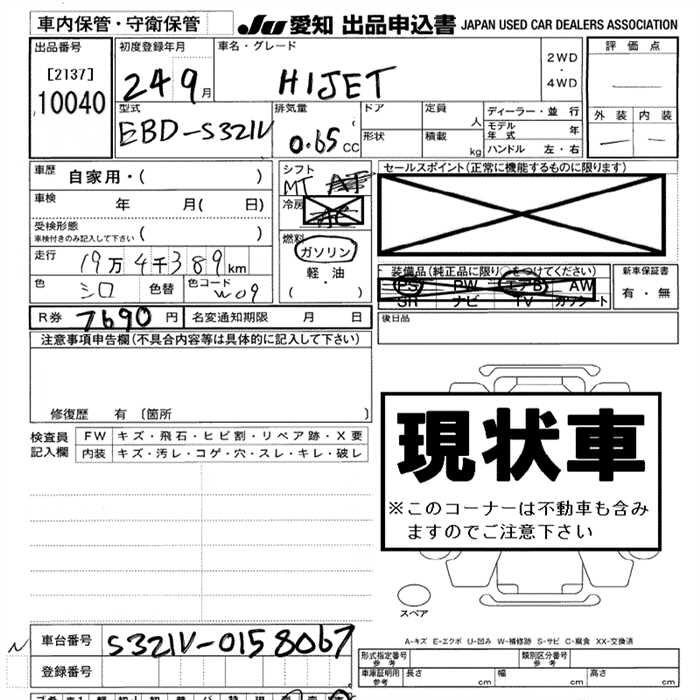 車内保管・守衛保管 JU 愛知 出品申込書 JAPAN USED CAR DEALERS ASSOCIATION
出品番号 初度登録年月 車名・グレード 評価点
[2137] 24 9月 HIJET 2WD・4WD
10040
型式 排気量 ドア 定員 人 ディーラー・並行 外装 内装
EBD-S321V 0.65cc 形状 積載 kg モデル年式 年
ハンドル 左・右
車歴 自家用・( ) シフト MT AT セールスポイント(正常に機能するものに限ります)
車検 年 月( 日) 冷房 AC
受検形態 車検付きのみ記入して下さい ( ) 燃料 ガソリン
走行 19万4千389km 軽油 装備品(純正品に限り○をつけてください) 新車保証書
色 シロ 色替 色コード W09 ( ・ ) PS PW エアB AW 有・無
SR ナビ TV カセット
R券 7690円 名変通知期限 月 日 後日品
注意事項申告欄(不具合内容等は具体的に記入して下さい)
修復歴 有 [箇所 ]
検査員記入欄 FW キズ・飛石・ヒビ割・リペア跡・X要
内装 キズ・汚レ・コゲ・穴・スレ・キレ・破レ
現状車
※このコーナーは不動車も含み
ますのでご注意下さい
スペア
A-キズ E-エクボ U-凹み W-補修跡 S-サビ C-腐食 XX-交換済
N 車台番号 S321V-0158067
登録番号
形式指定番号 参考 類別区分番号 参考
車庫証明用 参考 長さ cm 幅 cm 高さ cm